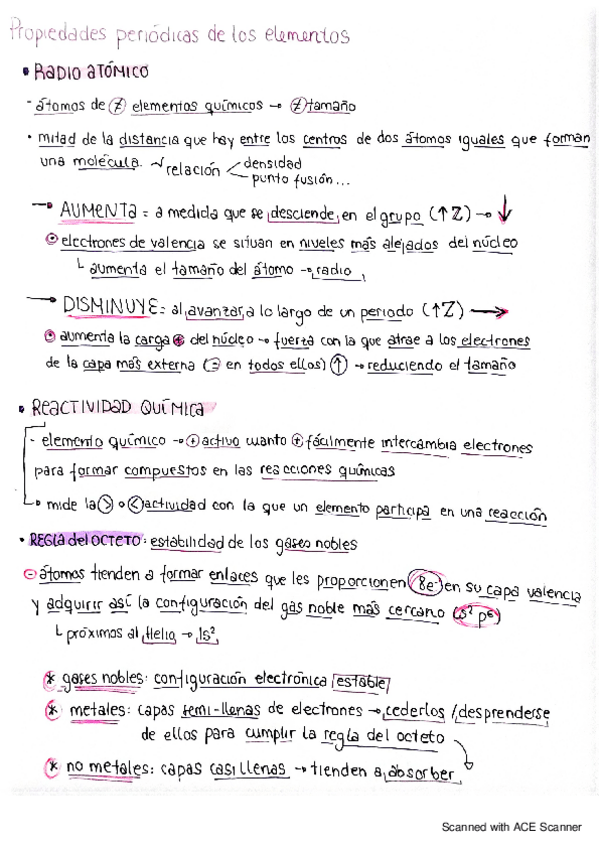 Propiedades periódicas de los elementos
• RADIO ATÓMICO
- átomos de ≠ elementos químicos → ≠ tamaño
• mitad de la distancia que hay entre los centros de dos átomos iguales que forman
una molécula. relación < densidad
punto fusión...
→ AUMENTA = a medida que se desciende en el grupo (↑Z) → ↓
electrones de valencia se sitúan en niveles más alejados del núcleo
└ aumenta el tamaño del átomo → radio
→ DISMINUYE = al avanzar a lo largo de un periodo (↑Z) →
aumenta la carga + del núcleo → fuerza con la que atrae a los electrones
de la capa más externa (= en todos ellos) ↑ → reduciendo el tamaño
• REACTIVIDAD QUÍMICA
- elemento químico → + activo cuanto + fácilmente intercambia electrones
para formar compuestos en las reacciones químicas
→ mide la > o < actividad con la que un elemento participa en una reacción
• REGLA del OCTETO: estabilidad de los gases nobles
átomos tienden a formar enlaces que les proporcionen 8e⁻ en su capa valencia
y adquirir así la configuración del gas noble más cercano (s² p⁶)
└ próximos al Helio → 1s²
* gases nobles: configuración electrónica estable
* metales: capas semi-llenas de electrones → cederlos / desprenderse
de ellos para cumplir la regla del octeto
* no metales: capas casi llenas → tienden a absorber
Scanned with ACE Scanner